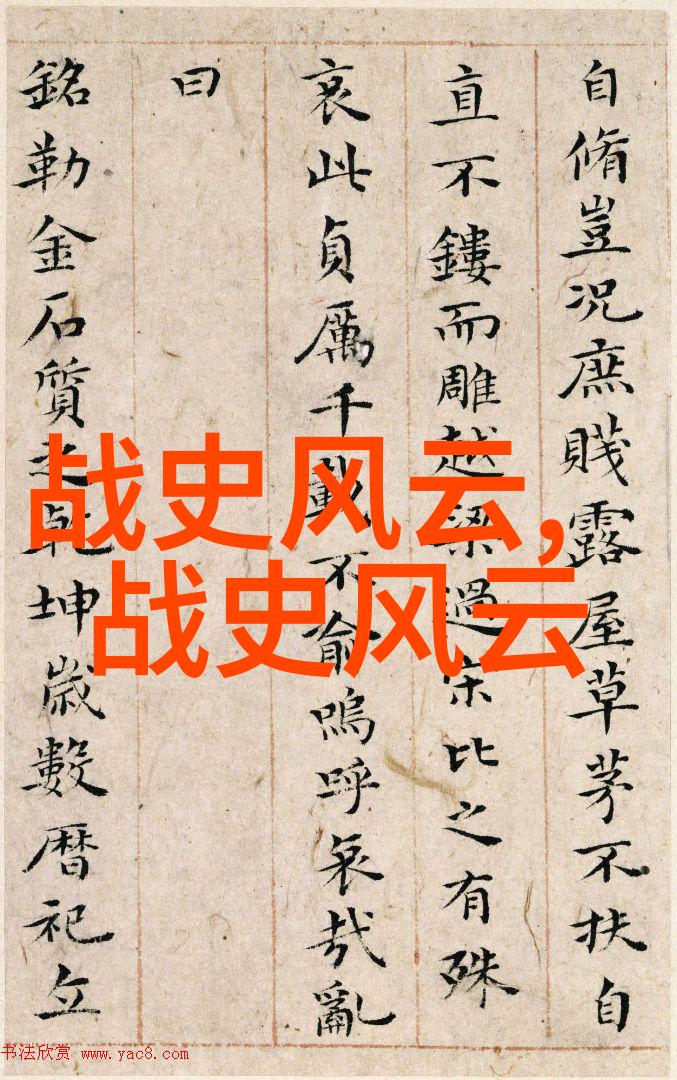 自脩豈況庶賤露屋草茅不扶自
直不鏤而雕越梁過宋比之有殊
哀此貞厲千載不俞嗚呼哀哉亂
曰
銘勒金石質之乾坤歲數暦祀立
战史风云,
战史风云
书法欣赏 www.yac8.com